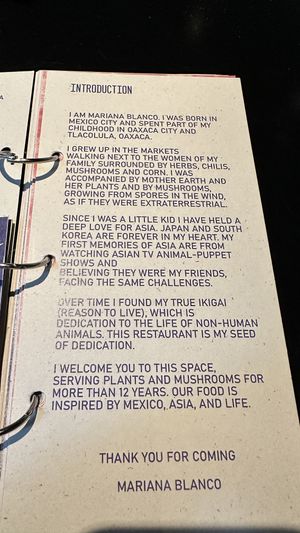 INTRODUCTION
I AM MARIANA BLANCO. I WAS BORN IN
MEXICO CITY AND SPENT PART OF MY
CHILDHOOD IN OAXACA CITY AND
TLACOLULA, OAXACA.
I GREW UP IN THE MARKETS
WALKING NEXT TO THE WOMEN OF MY
FAMILY SURROUNDED BY HERBS, CHILIS,
MUSHROOMS AND CORN. I WAS
ACCOMPANIED BY MOTHER EARTH AND
HER PLANTS AND BY MUSHROOMS,
GROWING FROM SPORES IN THE WIND,
AS IF THEY WERE EXTRATERRESTRIAL.
SINCE I WAS A LITTLE KID I HAVE HELD A
DEEP LOVE FOR ASIA. JAPAN AND SOUTH
KOREA ARE FOREVER IN MY HEART. MY
FIRST MEMORIES OF ASIA ARE FROM
WATCHING ASIAN TV ANIMAL-PUPPET
SHOWS AND
BELIEVING THEY WERE MY FRIENDS,
FACING THE SAME CHALLENGES.
OVER TIME I FOUND MY TRUE IKIGAI
(REASON TO LIVE), WHICH IS
DEDICATION TO THE LIFE OF NON-HUMAN
ANIMALS. THIS RESTAURANT IS MY SEED
OF DEDICATION.
I WELCOME YOU TO THIS SPACE,
SERVING PLANTS AND MUSHROOMS FOR
MORE THAN 12 YEARS. OUR FOOD IS
INSPIRED BY MEXICO, ASIA, AND LIFE.
THANK YOU FOR COMING
MARIANA BLANCO